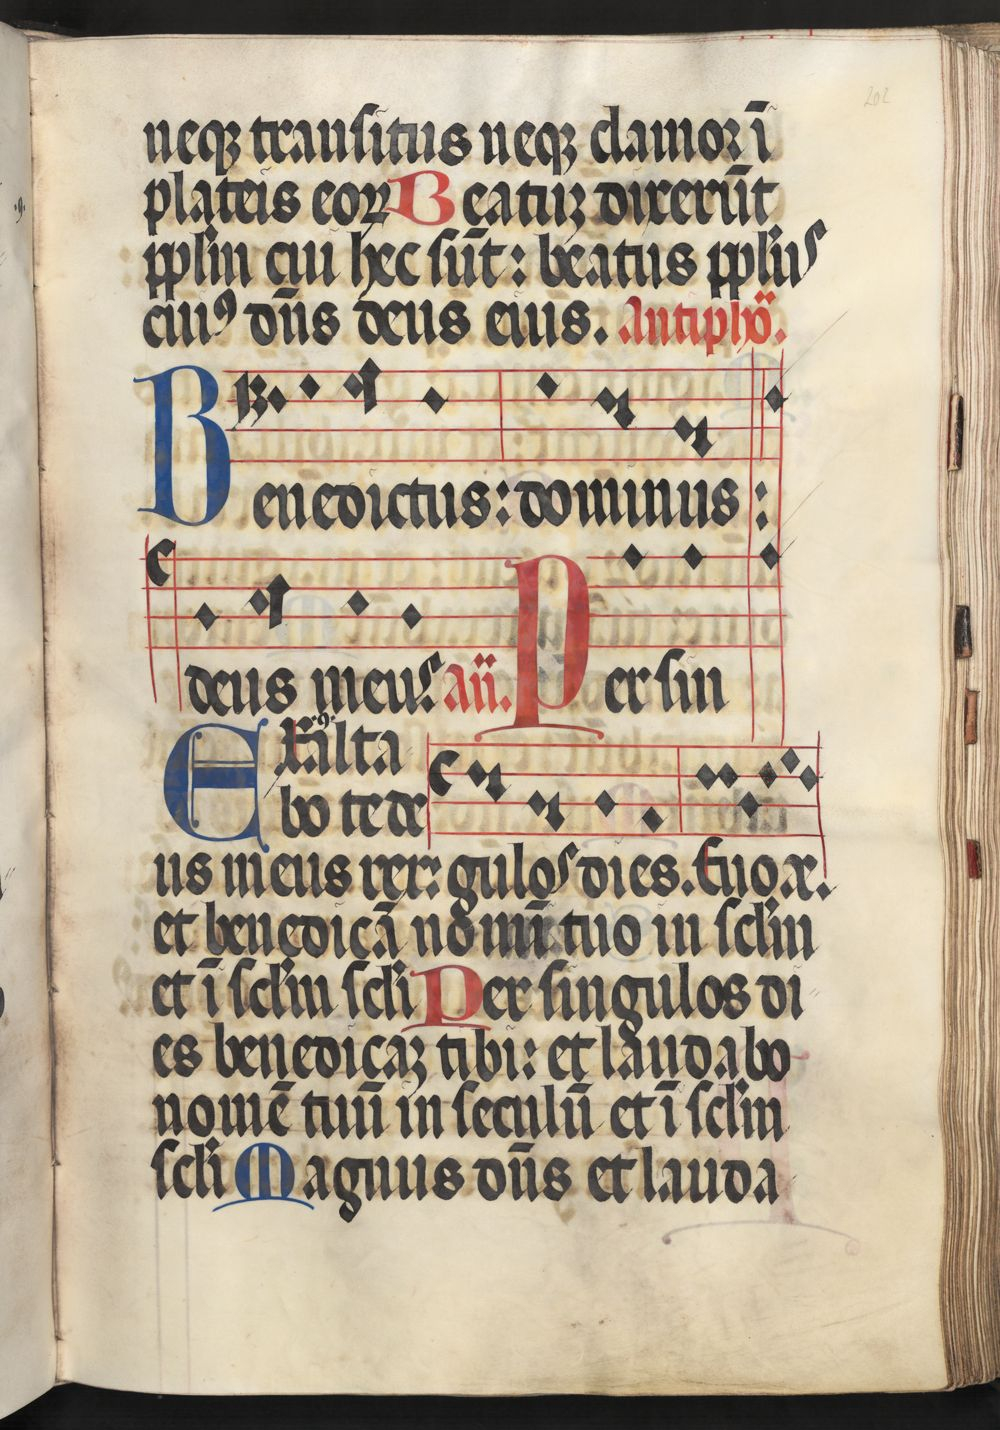 202
neqꝫ transitus neqꝫ clamor ī
plateis eoꝝ Beatuꝫ dixerūt
pplm cui hec sūt: beatus pplus
cuiꝰ dn̄s deus eius. Antiphō.
Benedictus: dominus:
deus meus. añ. Per sin
Exalta
bo te de
us meus rex: gulos dies. Euoæ.
et benedicā nomī tuo in sclm
et ī sclm scli Per singulos di
es benedicaꝫ tibi: et laudabo
nomē tuū in seculū et ī sclm
scli Magnus dn̄s et lauda